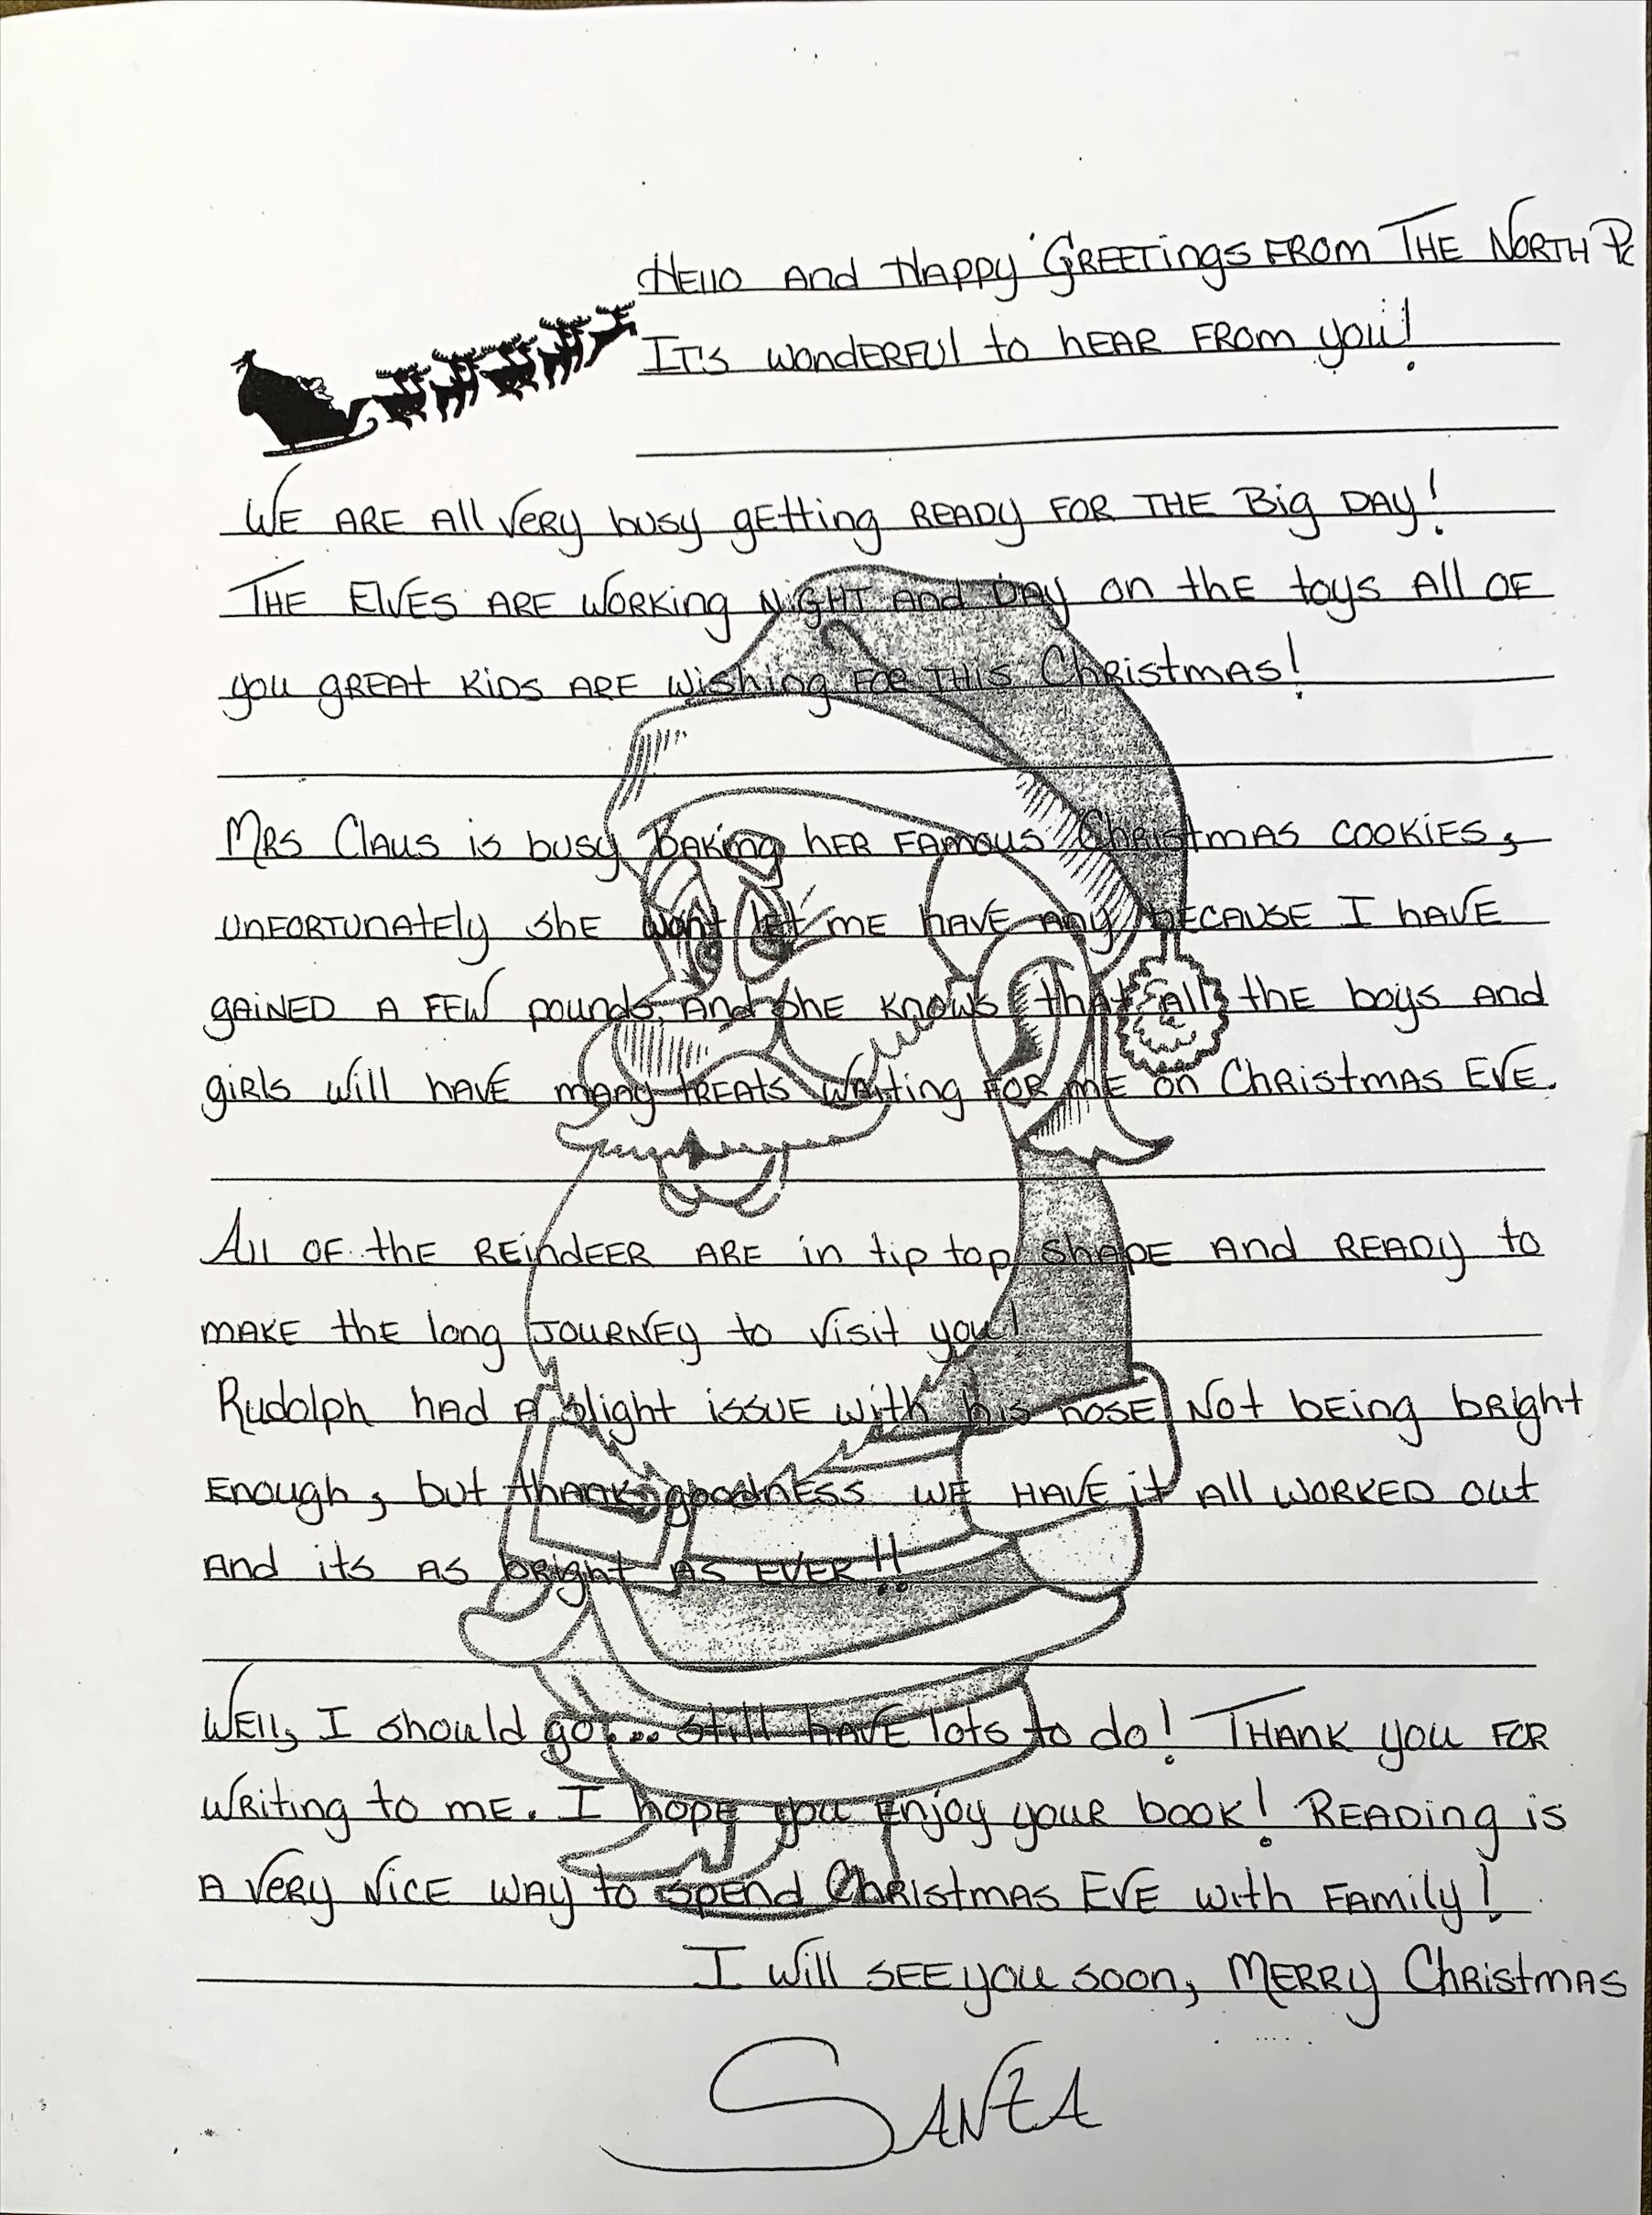 Hello and Happy Greetings From The North
It's wonderful to hear from you!
We are all very busy getting ready for the Big Day!
The Elves are working night and day on the toys all of
you great kids are wishing for this Christmas!
Mrs Claus is busy Baking her famous Christmas cookies,
unfortunately she wont let me have any because I have
gained a few pounds and she knows that all the boys and
girls will have many treats waiting for me on Christmas Eve.
All of the reindeer are in tip top shape and ready to
make the long journey to visit you!
Rudolph had a slight issue with his nose not being bright
enough, but thank goodness we have it all worked out
and its as bright as ever!!
Well, I should go... still have lots to do! Thank you for
writing to me. I hope you enjoy your book! Reading is
a very nice way to spend Christmas Eve with family!
I will see you soon, Merry Christmas
Santa